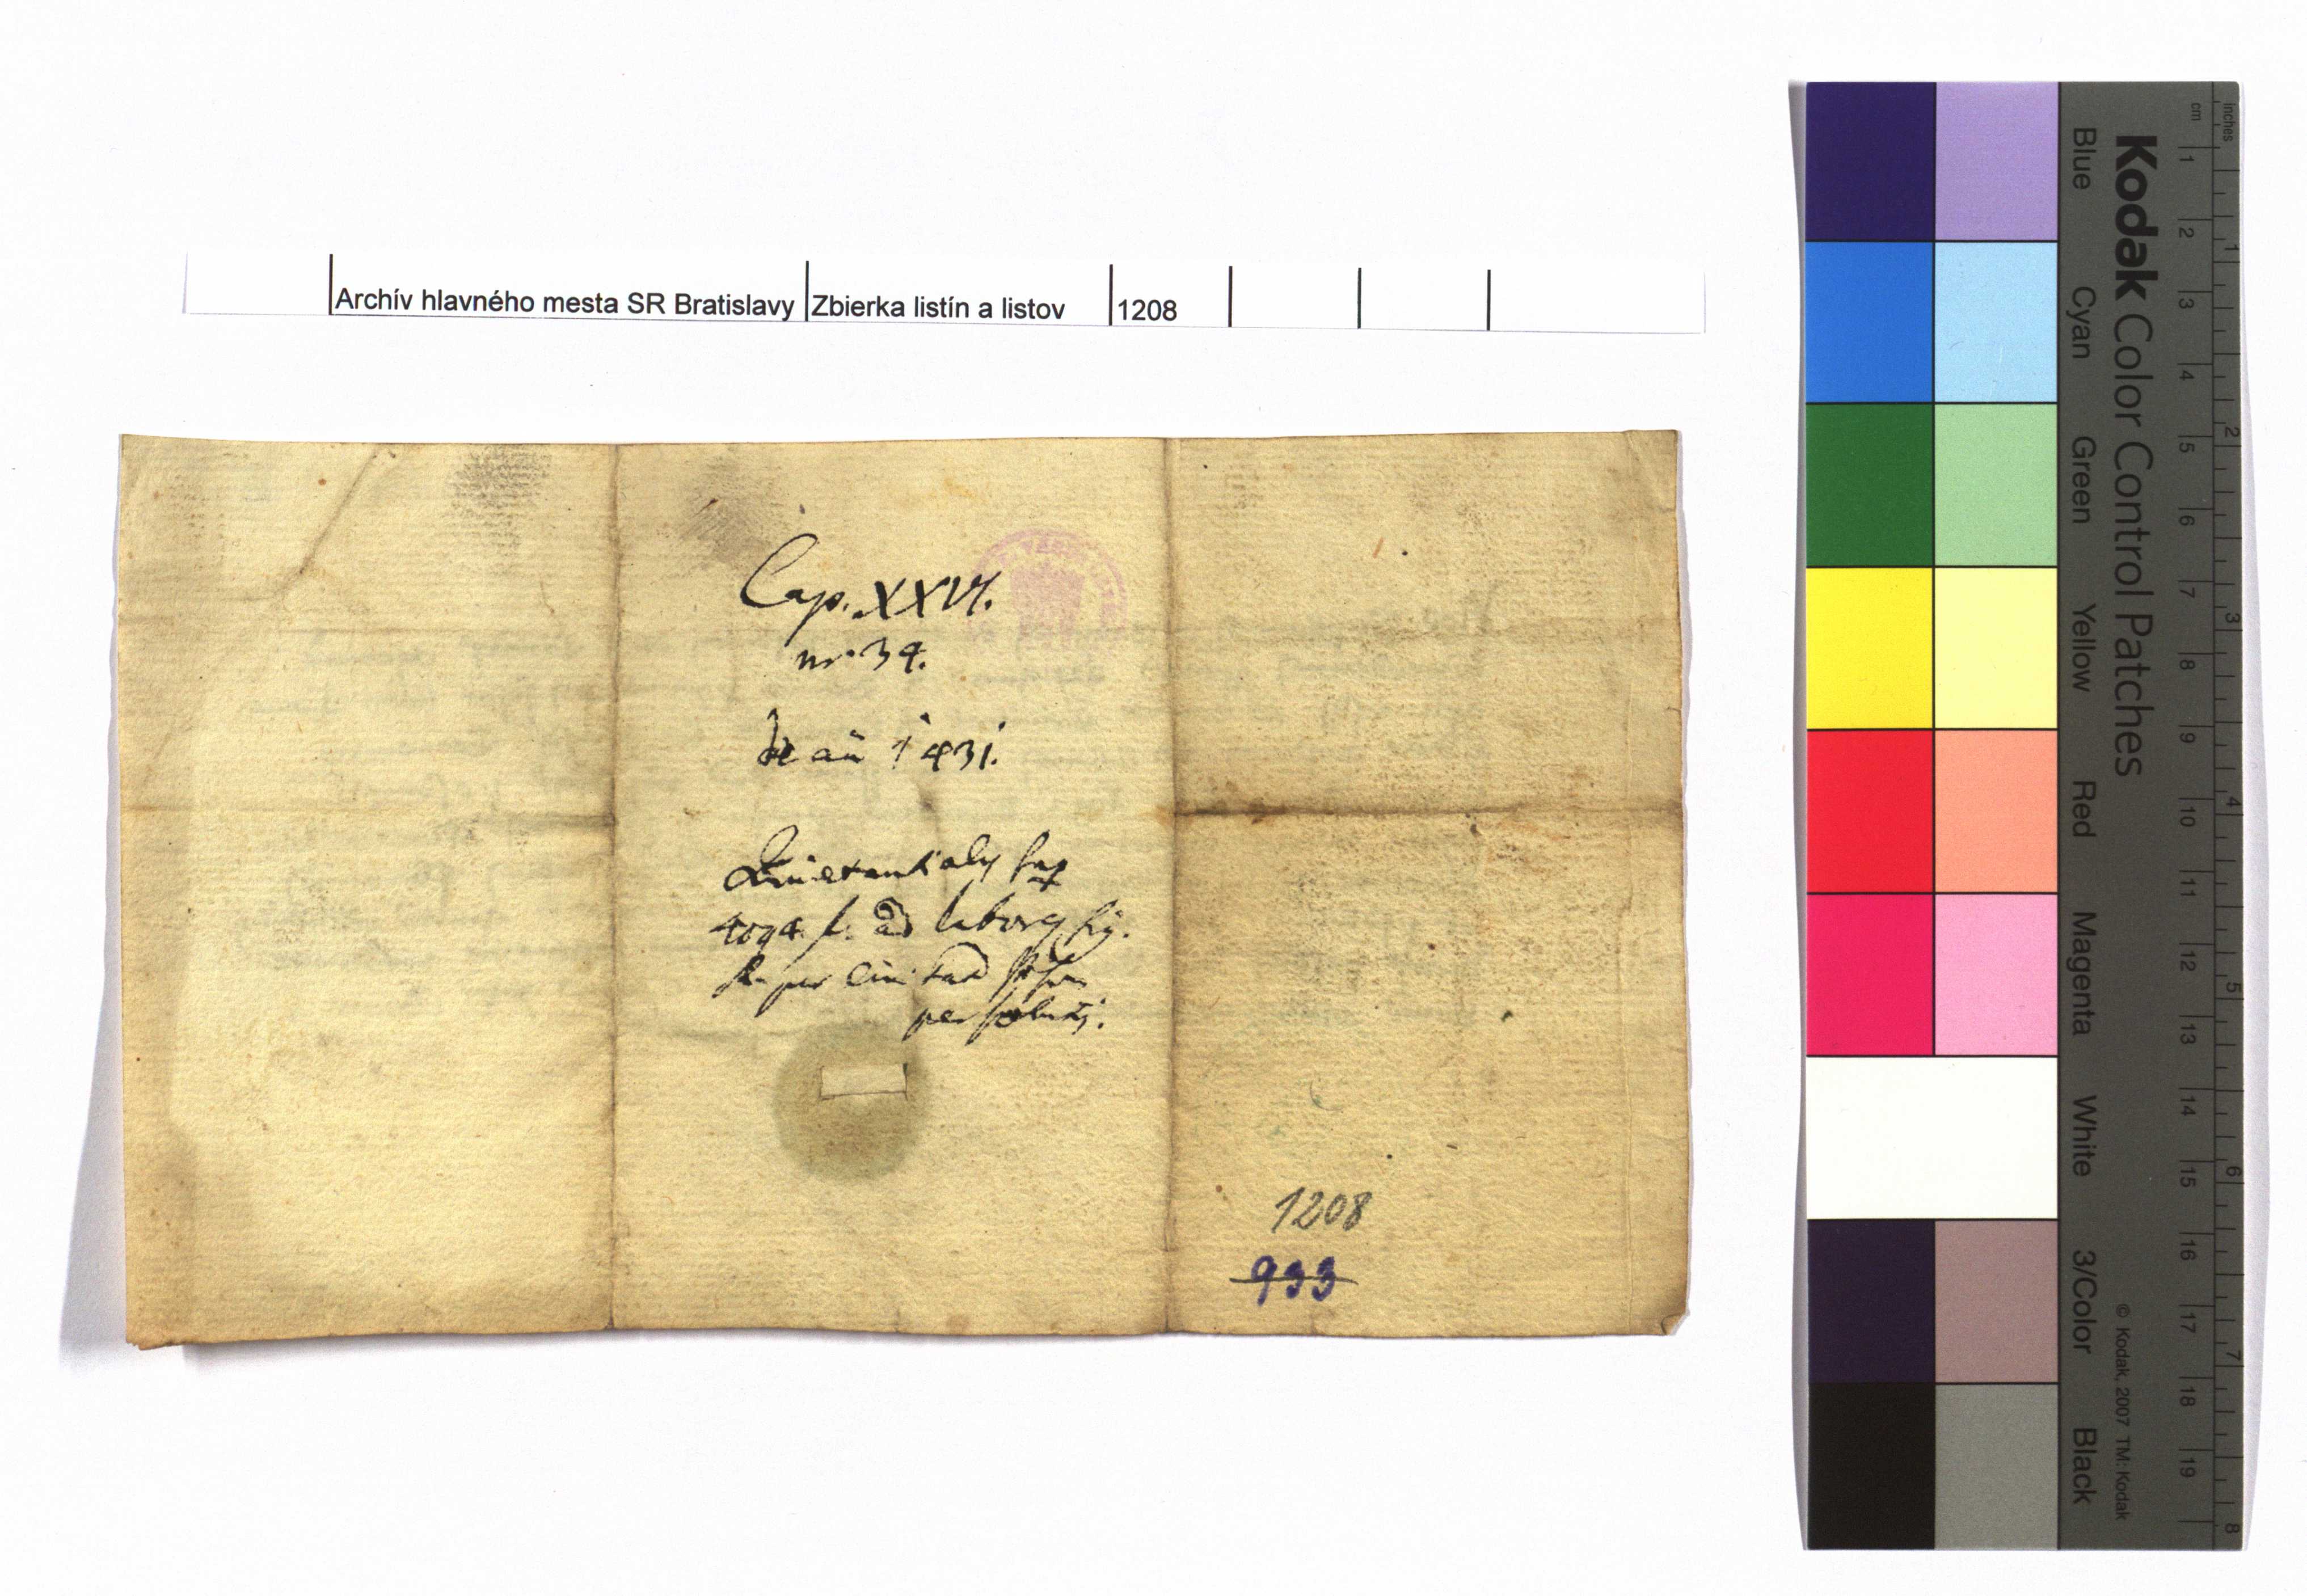 Archív hlavného mesta SR Bratislavy Zbierka listín a listov 1208
Cap. XXVI.
nr. 34.
de añ 1431.
Quietantialy sup
ad labores
per Civitat
persoluti.
1208
933
Kodak Color Control Patches
Blue Cyan Green Yellow Red Magenta White 3/Color Black
© Kodak, 2007 TM: Kodak
cm 1 2 3 4 5 6 7 8 9 10 11 12 13 14 15 16 17 18 19
inches 1 2 3 4 5 6 7 8